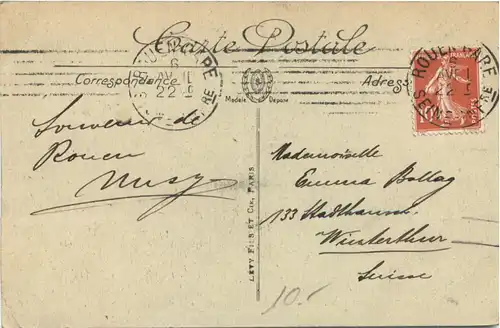 Carte Postale
Correspondance
Adresse
Modèle Déposé
ROUEN GARE
SEINE INFRE
6
AVRIL
22
ROUEN GARE
SEINE INFRE
AVRIL
22
10
POSTES
Souvenir de
Rouen
Mademoiselle
Emma Bollag
133 Stadthausstr.
Winterthur
Suisse
LEVY FILS ET CIE, PARIS
10.-